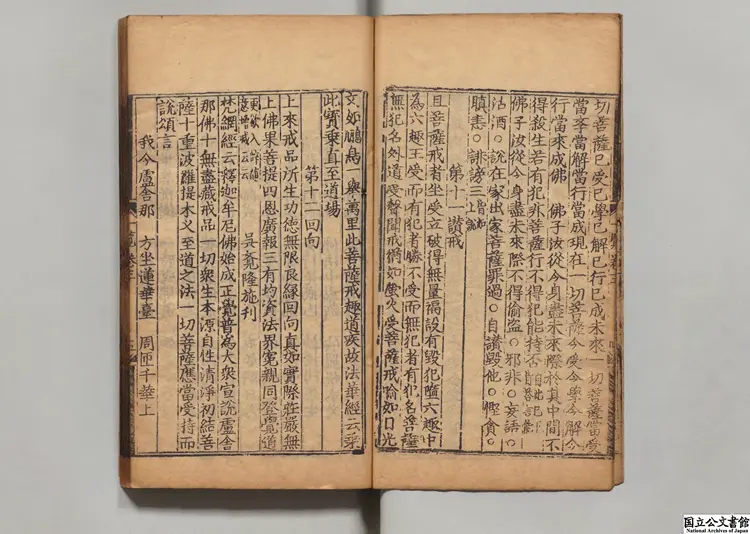 切菩薩已受已學已解已行已成未來一切菩薩當受
當學當解當行當成現在一切菩薩今受今學今解今
行當來成佛　佛子汝從今身盡未來際於其中間不
得殺生若有犯非菩薩行不得犯能持否
佛子汝從今身盡未來際不得偷盗○邪非○妄語○
沽酒○說在家出家菩薩罪過○自讃毀他○慳貪○
瞋恚○誹謗三
第十一讃戒
且菩薩戒者坐受立破得無量福設有毀犯墮六趣中
為六趣王受而有犯者勝不受而無犯者有犯名菩薩
無犯名外道受聲聞戒猶如螢火受菩薩戒喻如日光
又如鵬鳥一舉萬里此菩薩戒趣道疾故法華經云乗
此寳乗直至道場
第十二回向
上來戒品所生功徳無限良緣回向真如實際莊嚴無
上佛果菩提四恩廣報三有均資法界寃親同登覺道
隆施利
梵網經云釋迦牟尼佛始成正覺普為大衆宣說盧舎
那佛十無盡藏戒品一切衆生本源自性清淨初結菩
薩十重波羅提木义至道之法一切菩薩應當受持而
說頌言
我今盧舎那　方坐蓮華臺　周匝千華上
国立公文書館
National Archives of Japan